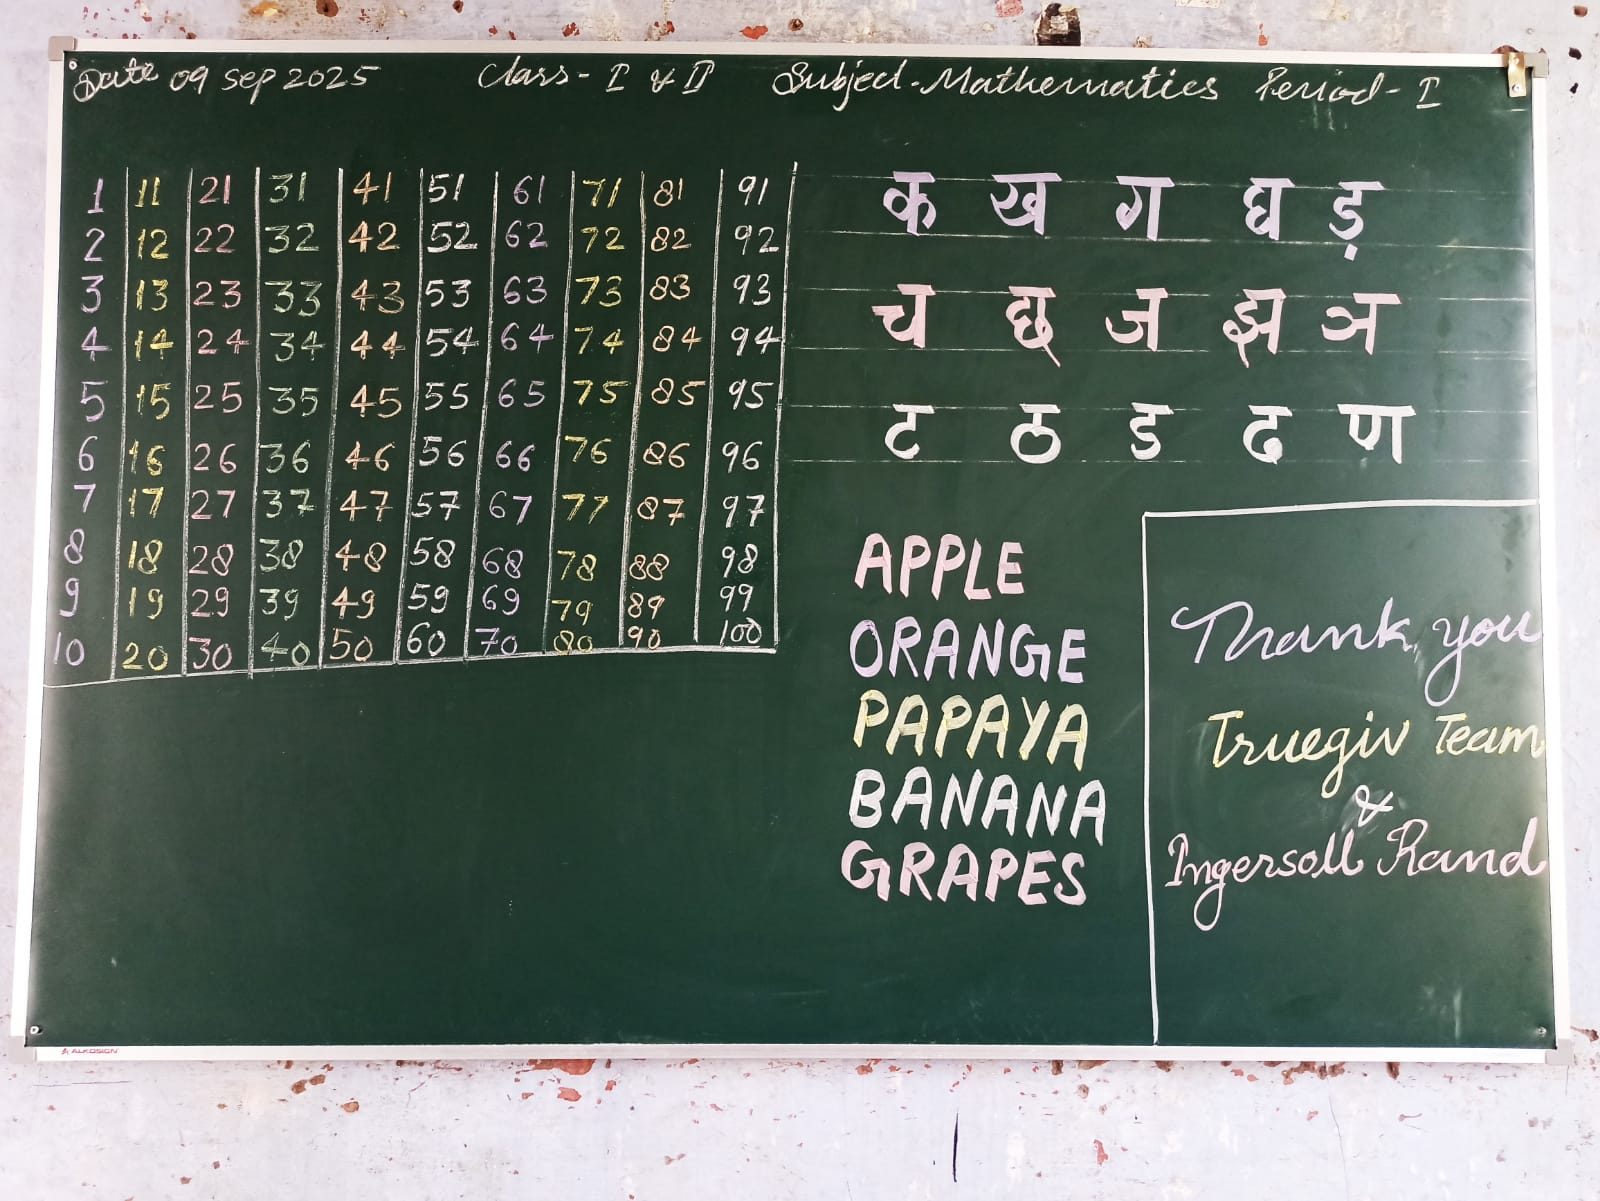 Date 09 Sep 2025 Class- I & II Subject-Mathematics Period- I
1 11 21 31 41 51 61 71 81 91
2 12 22 32 42 52 62 72 82 92
3 13 23 33 43 53 63 73 83 93
4 14 24 34 44 54 64 74 84 94
5 15 25 35 45 55 65 75 85 95
6 16 26 36 46 56 66 76 86 96
7 17 27 37 47 57 67 77 87 97
8 18 28 38 48 58 68 78 88 98
9 19 29 39 49 59 69 79 89 99
10 20 30 40 50 60 70 80 90 100
क ख ग घ ड़
च छ ज झ ञ
ट ठ ड ढ ण
APPLE
ORANGE
PAPAYA
BANANA
GRAPES
Thank you
Truegiv Team
&
Ingersoll Rand
ALKOSIGN